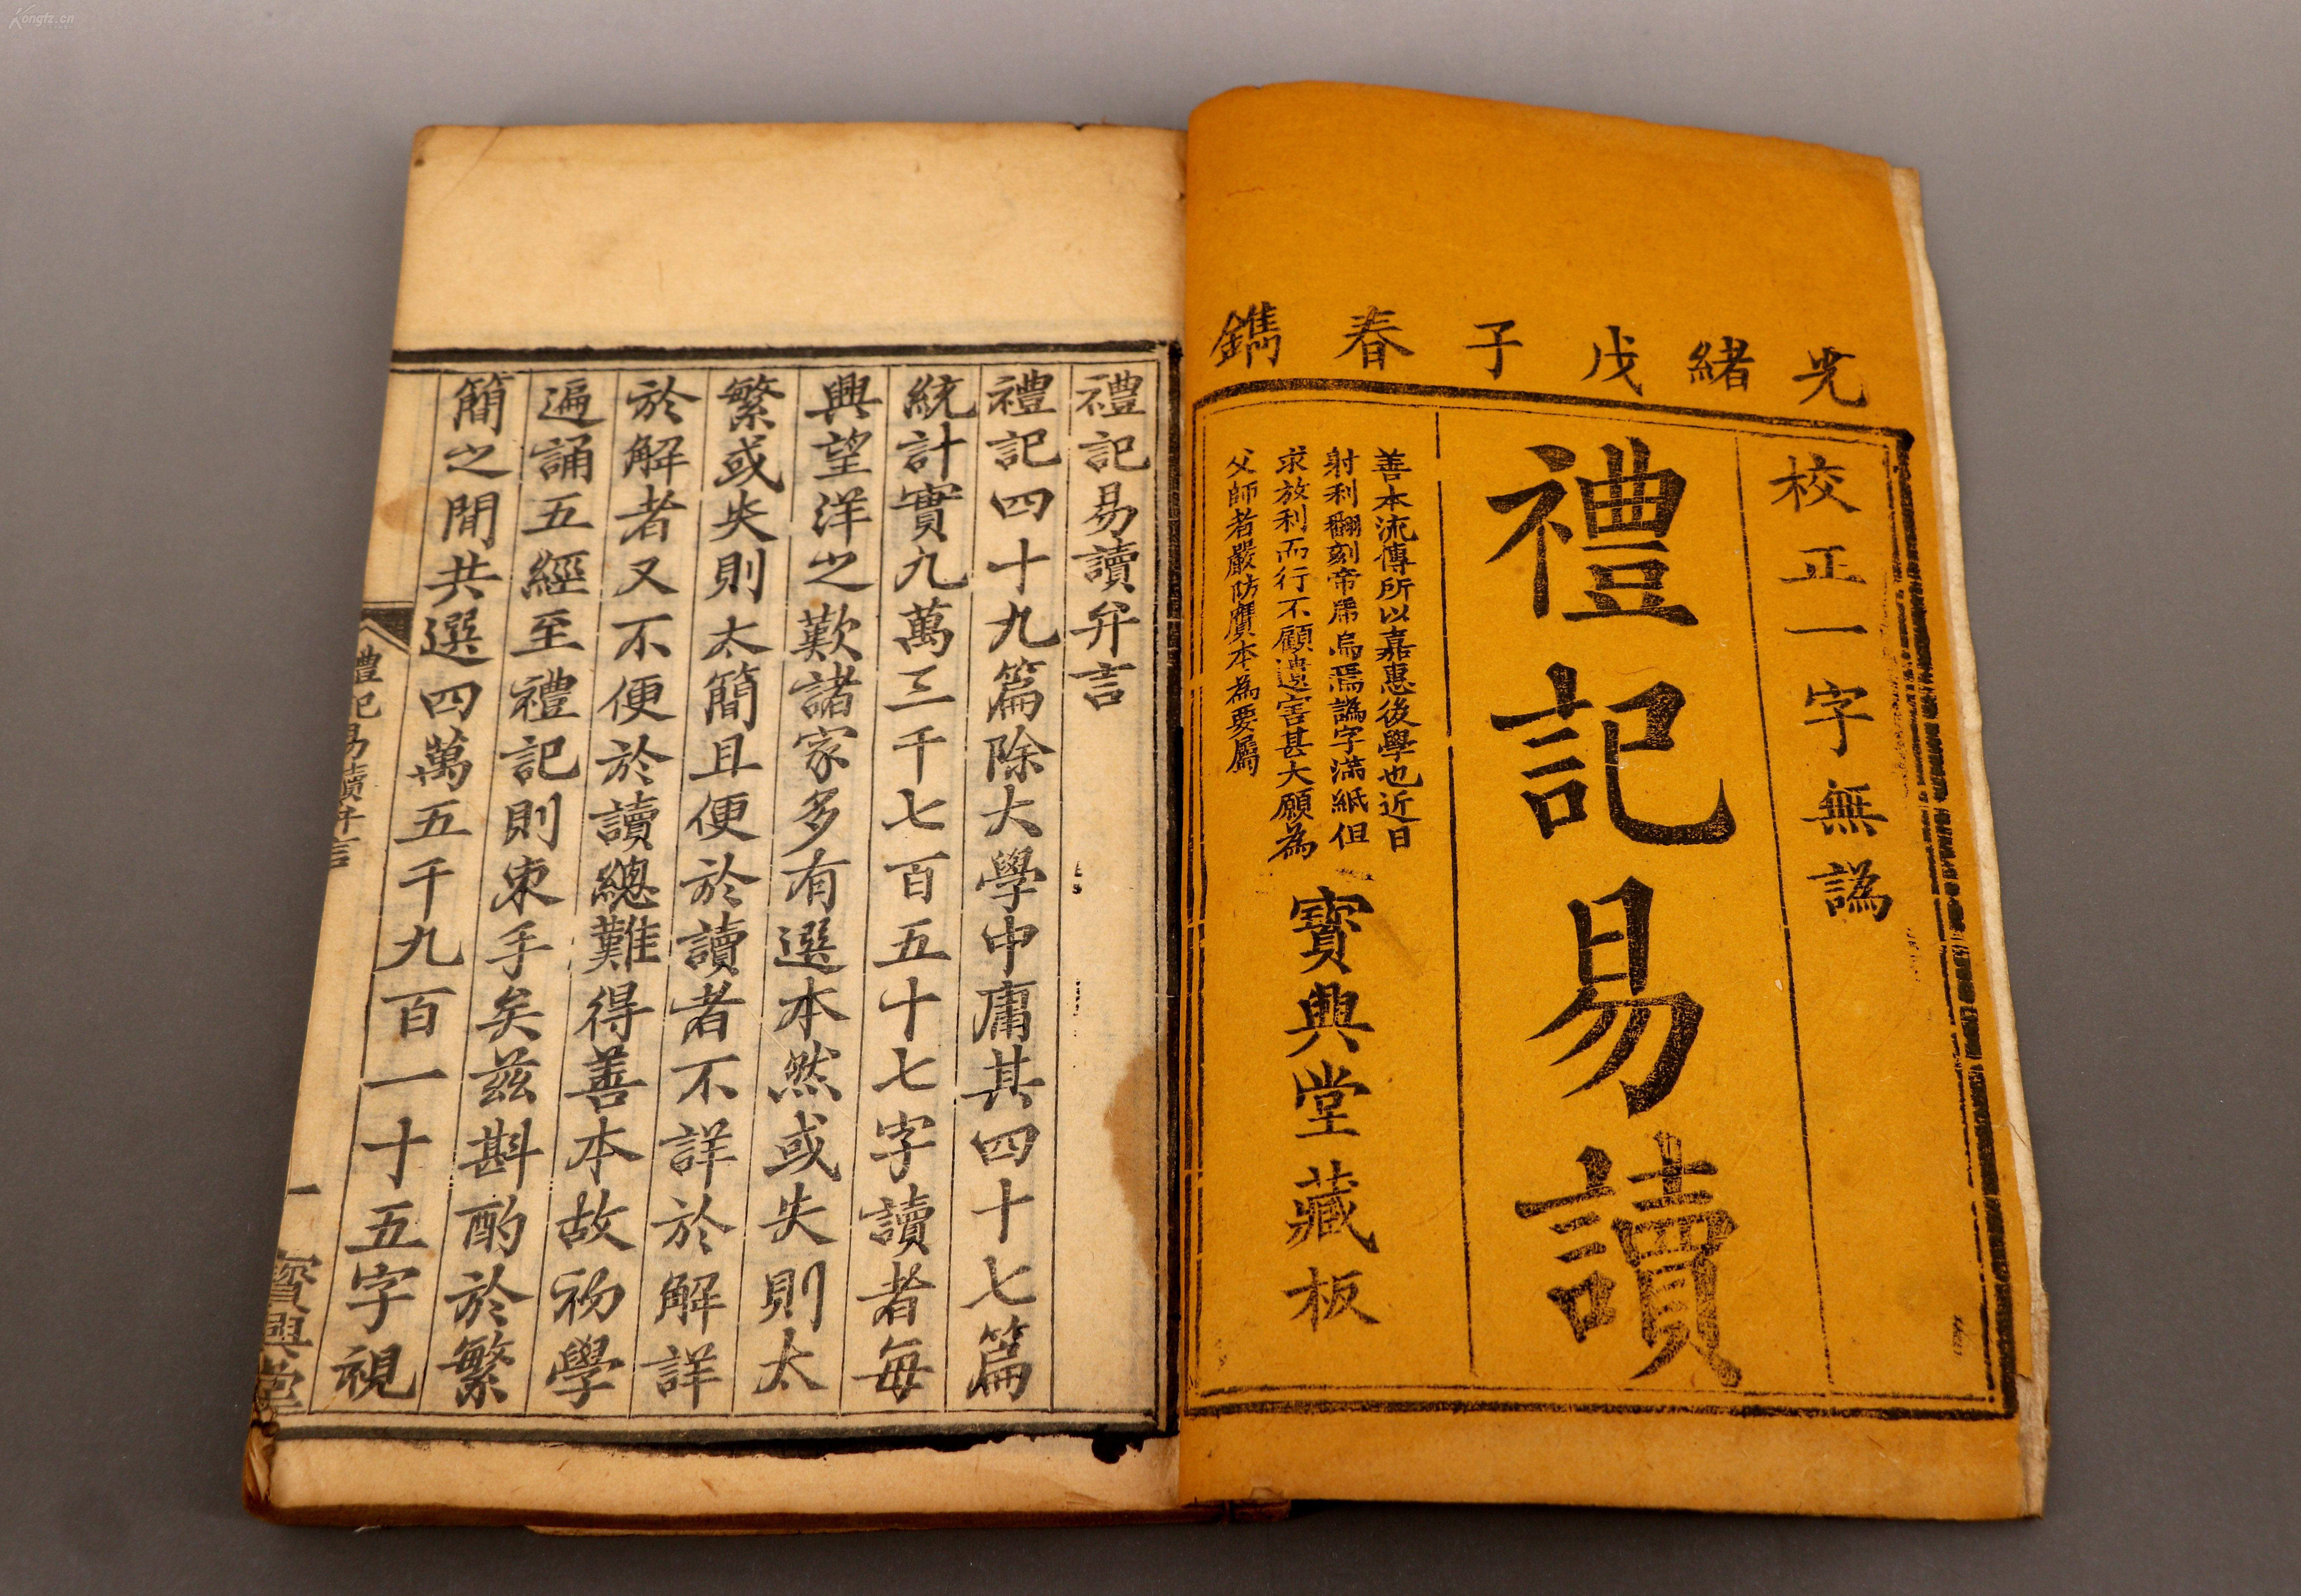 光緒戊子春鐫
校正一字無譌
禮記易讀
善本流傳所以嘉惠後學也近日
射利翻刻帝乕烏焉譌字滿紙但
求放利而行不顧遺害甚大願為
父師者嚴防贋本為要屬
寶興堂藏板
禮記易讀弁言
禮記四十九篇除大學中庸其四十七篇
統計實九萬三千七百五十七字讀者每
興望洋之歎諸家多有選本然或失則太
繁或失則太簡且便於讀者不詳於解詳
於解者又不便於讀總難得善本故初學
遍誦五經至禮記則束手矣茲斟酌於繁
簡之間共選四萬五千九百一十五字視
禮記易讀弁言
一
寶興堂
Kongfz.cn